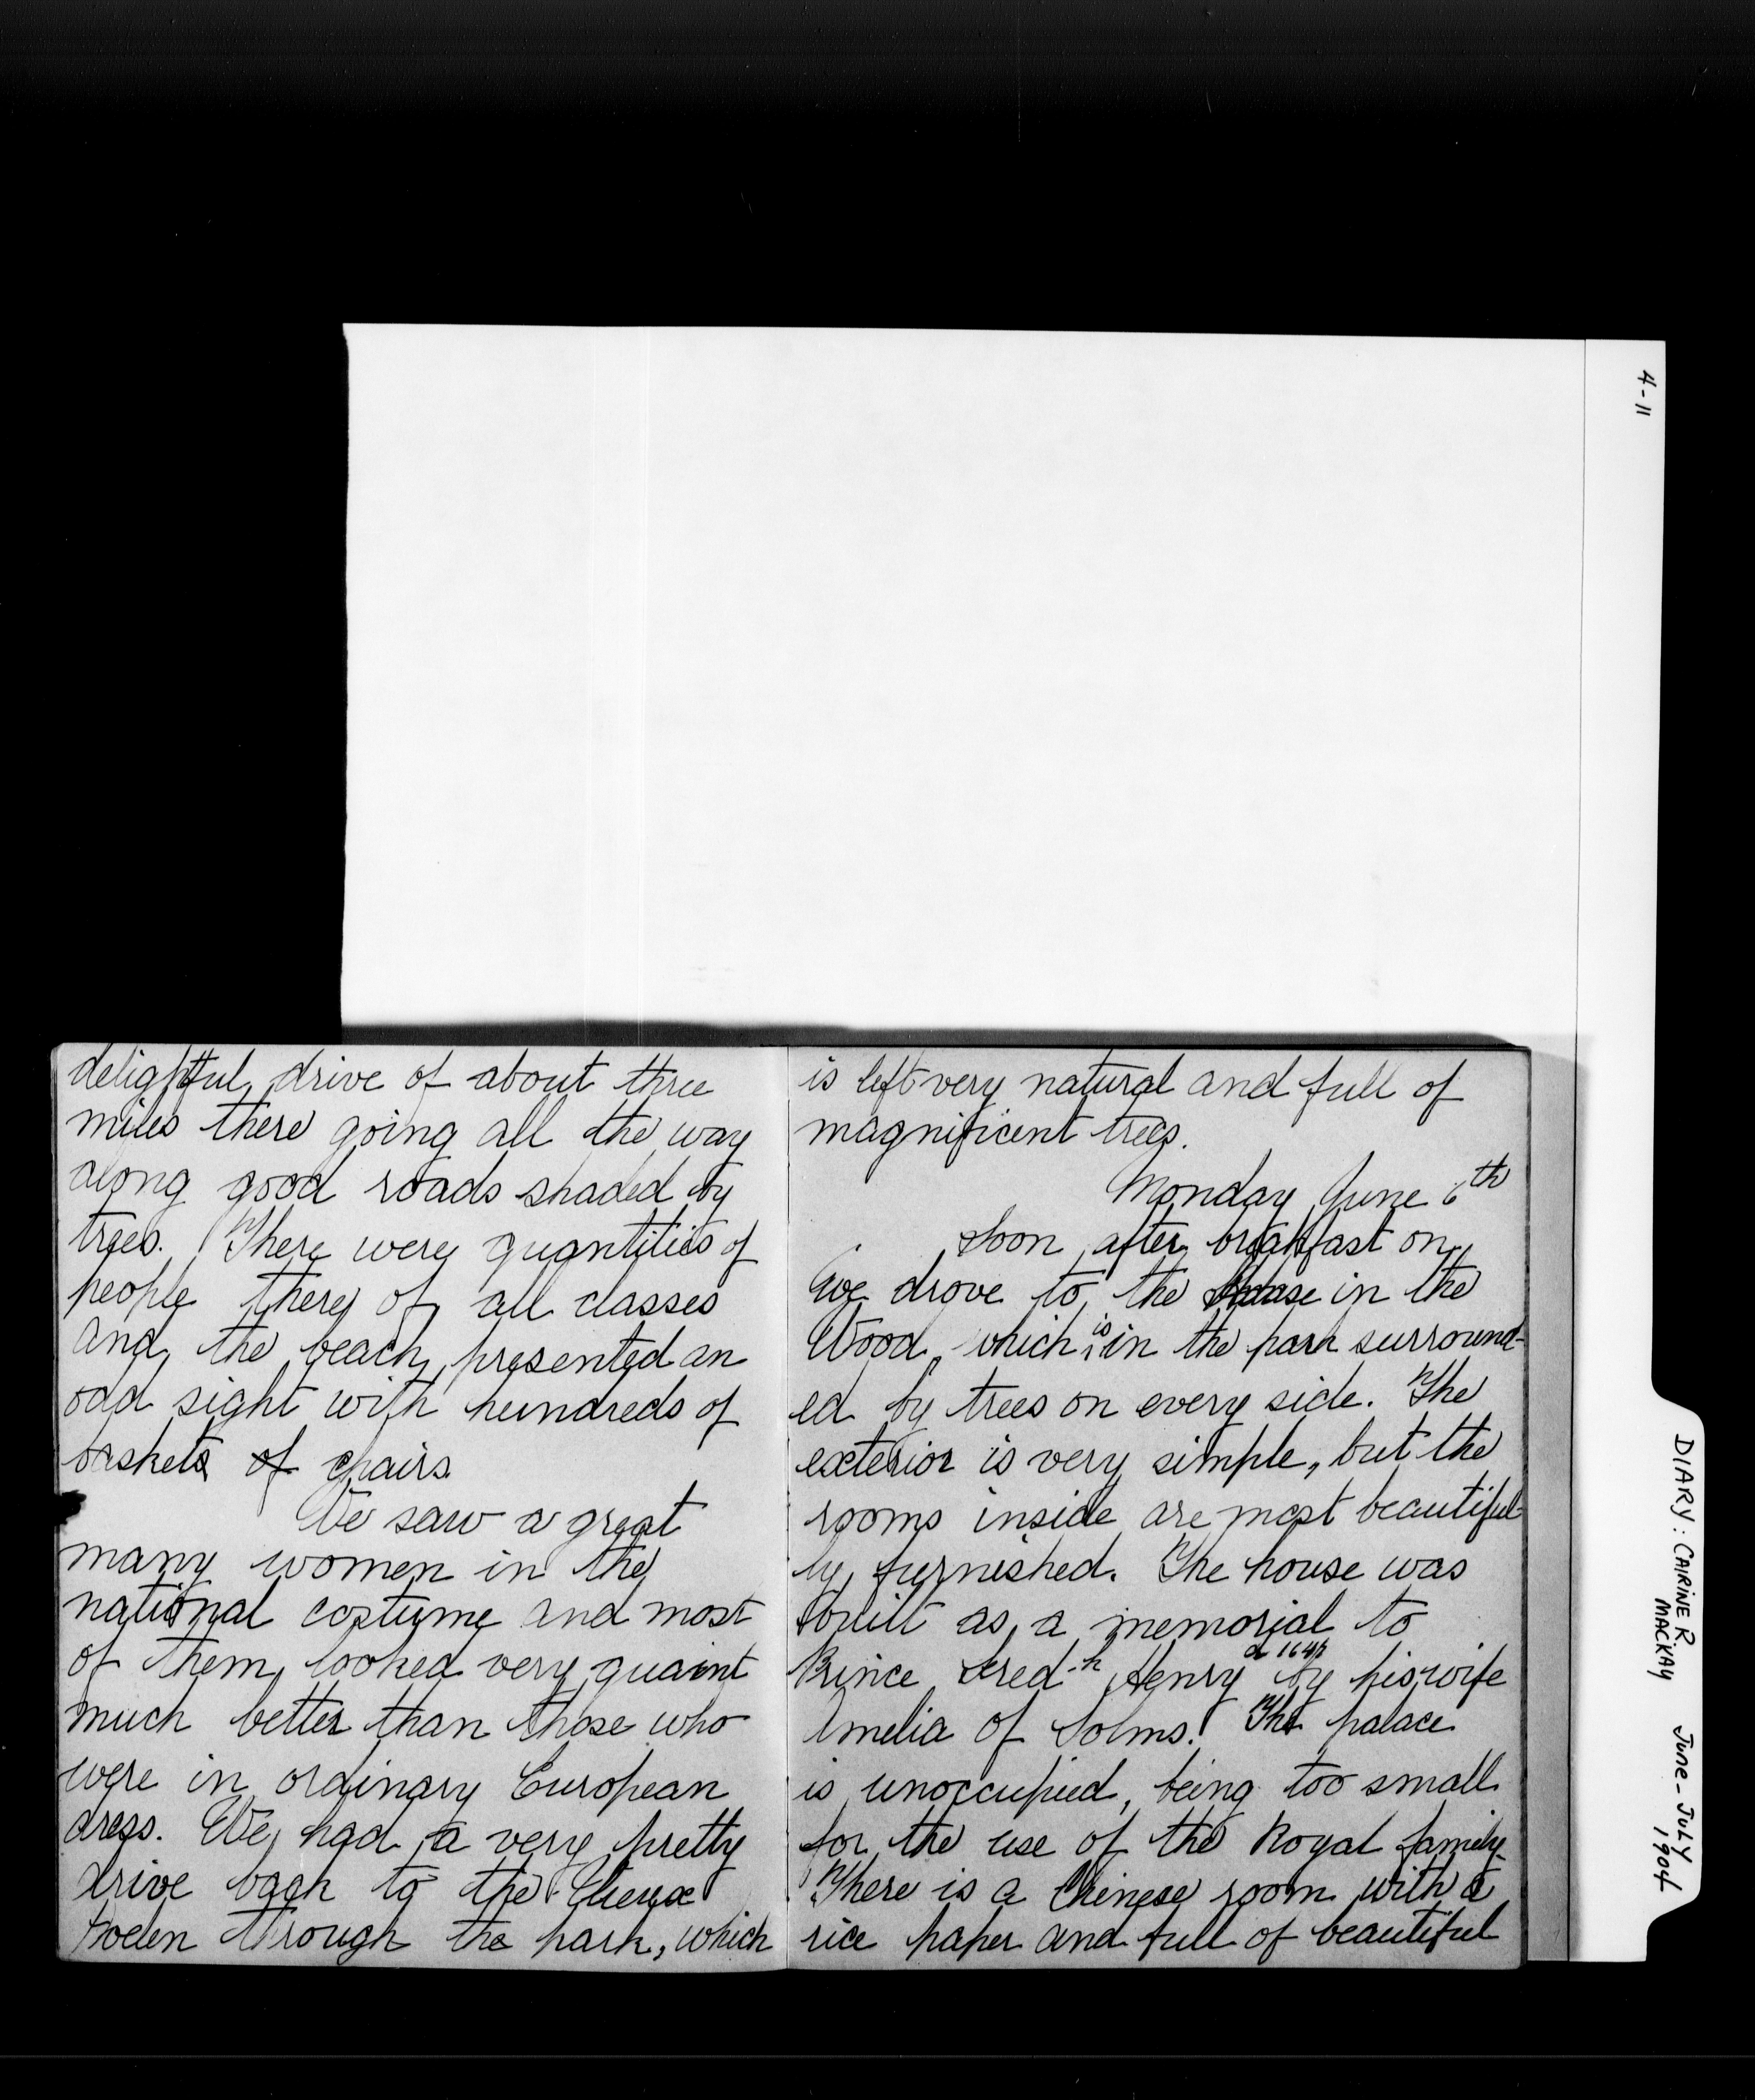 4-11
DIARY: CAIRINE R
MACKAY
June - July
1904
delightful drive of about three
miles there going all the way
along good roads shaded by
trees. There were quantities of
people there of all classes
and the beach presented an
odd sight with hundreds of
baskets of chairs.
We saw a great
many women in the
national costume and most
of them looked very quaint
much better than those who
were in ordinary European
dress. We had a very pretty
drive back to the Vieux
Doelen through the park, which
is left very natural and full of
magnificent trees.
Monday June 6th
Soon after breakfast on
we drove to the House in the
Wood which is in the park surround-
ed by trees on every side. The
exterior is very simple, but the
rooms inside are most beautiful-
ly furnished. The house was
built as a memorial to
Prince Fred-k Henry d 1647 by his wife
Amelia of Solms. The palace
is unoccupied, being too small
for the use of the Royal family.
There is a Chinese room with a
rice paper and full of beautiful